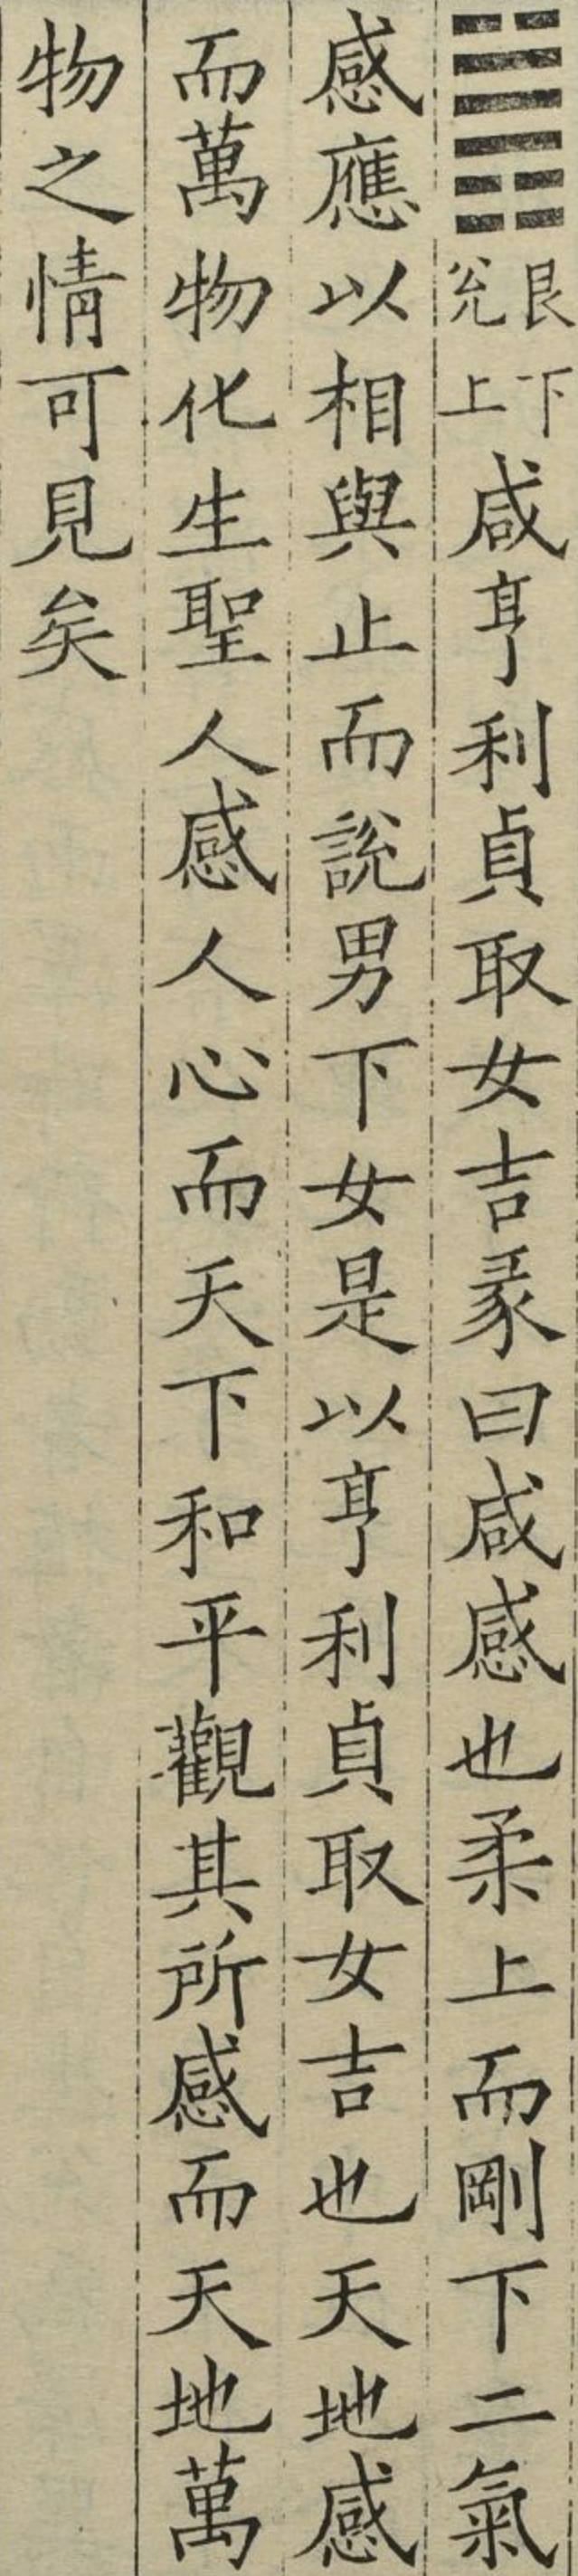 ䷞艮下兊上咸亨利貞取女吉彖曰咸感也柔上而剛下二氣
感應以相與止而說男下女是以亨利貞取女吉也天地感
而萬物化生聖人感人心而天下和平觀其所感而天地萬
物之情可見矣